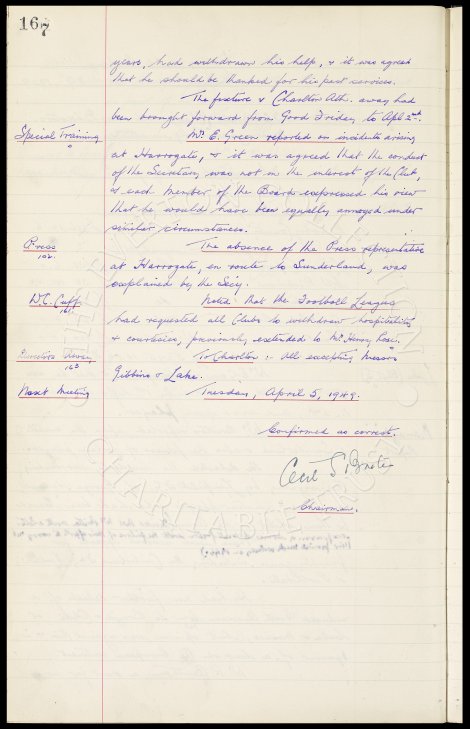 167
years, had withdrawn his help, & it was agreed
that he should be thanked for his past services.
The fixture v Charlton Ath. away had
been brought forward from Good Friday to Apl 2nd.
Special Training
Mr. E. Green reported on incidents arising
at Harrogate, & it was agreed that the conduct
of the Secretary was not in the interest of the Club,
& each member of the Board expressed his view
that he would have been equally annoyed under
similar circumstances.
Press
162.
The absence of the Press representative
at Harrogate, en route to Sunderland, was
explained by the Secy.
W.C. Cuff
161.
Noted: that the Football League
had requested all Clubs to withdraw hospitalities
& courtesies, previously extended to Mr. Henry Rose.
Directors Away
163
To Charlton :- All excepting Messrs
Gibbins & Lake.
Next Meeting
Tuesday, April 5, 1949.
Confirmed as correct.
Cecil S Baxter
Chairman.
CHARITABLE TRUST